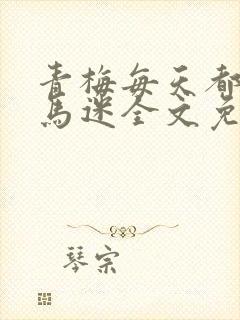 青梅每天都
馬迷全文免
琴宗